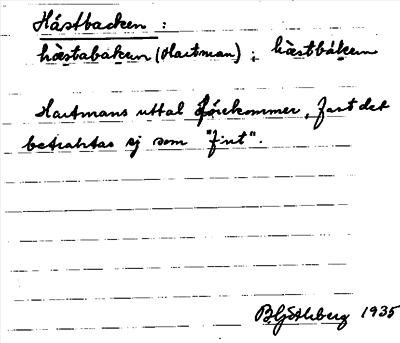 Hästbacken :
hästabaken (Hartman) ; hästbåken
Hartmans uttal förekommer, fast det
betraktas ej som "fint".
B. Götheberg 1935